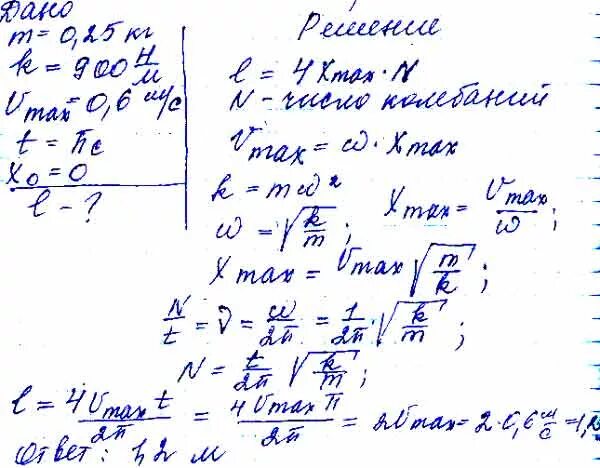 Дано
m = 0,25 кг
k = 900 Н/м
Vmax = 0,6 м/с
t = πс
X₀ = 0
l - ?
Решение
l = 4Xmax · N
N - число колебаний
Vmax = ω · Xmax
k = mω²
ω = √(k/m); Xmax = Vmax/ω;
Xmax = Vmax √(m/k);
N/t = ν = ω/2π = 1/2π · √(k/m);
N = t/2π √(k/m);
l = 4Vmax t/2π = 4Vmax π/2π = 2Vmax = 2 · 0,6 м/с = 1,2
Ответ: 1,2 м